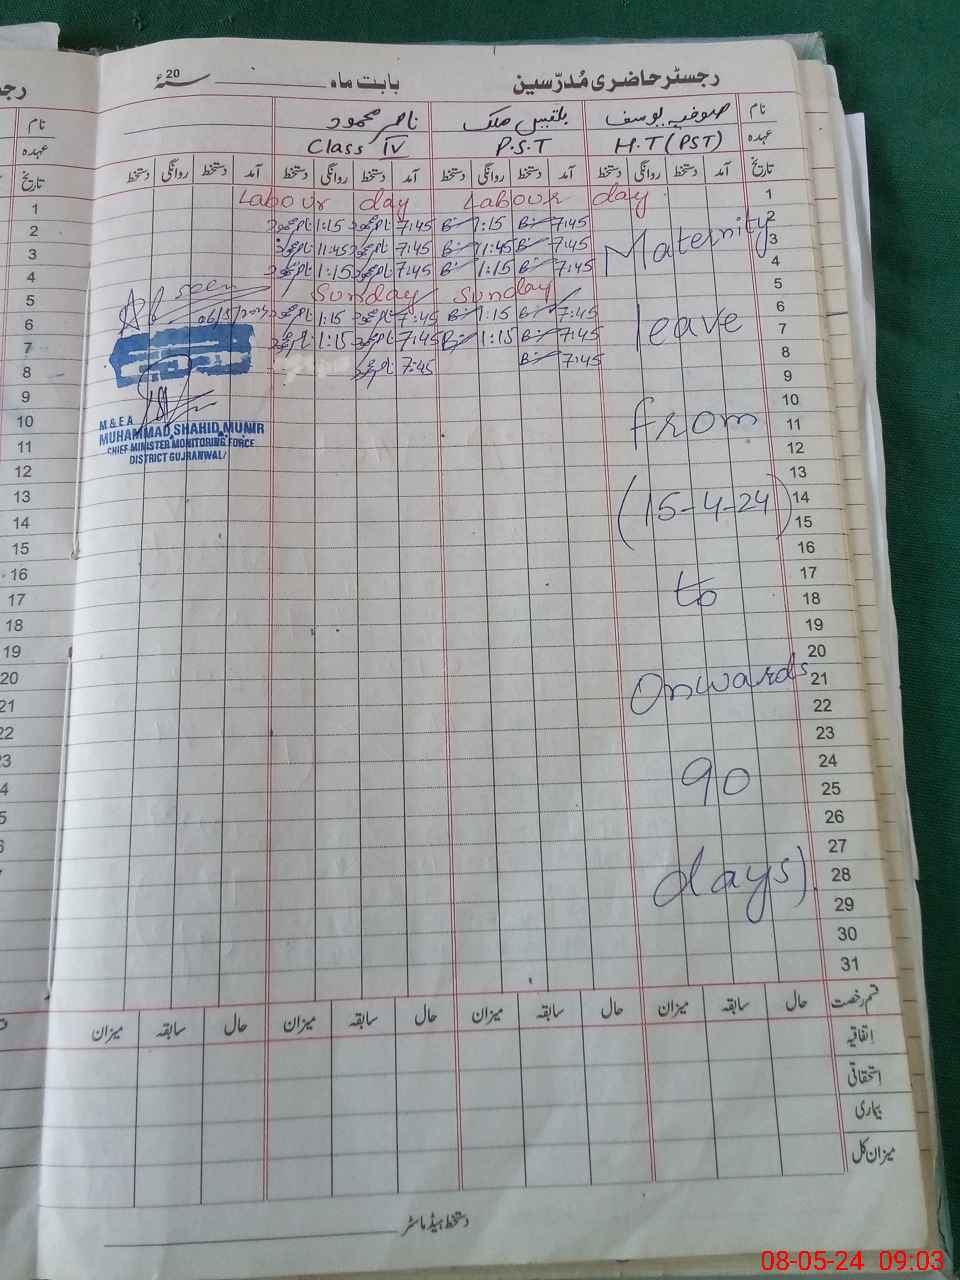 رجسٹر حاضری مُدرّسین بابت ماہ سنہ 20ء
نام صوفیہ یوسف بلقیس ملک ناصر محمود
عہدہ H.T (PST) P.S.T Class IV
تاریخ آمد دستخط روانگی دستخط آمد دستخط روانگی دستخط آمد دستخط روانگی دستخط آمد دستخط روانگی دستخط
1 Labour day Labour day
2 7:45 1:15 7:45 1:15
3 7:45 11:45 7:45 11:45
4 7:45 1:15 7:45 1:15
5 Sunday Sunday
6 7:45 1:15 7:45 1:15
7 7:45 1:15 7:45 1:15
8 7:45 7:45
9
10
11
12
13
14
15
16
17
18
19
20
21
22
23
24
25
26
27
28
29
30
31
Maternity
leave
from
(15-4-24)
to
Onwards
90
days)
seen
06/5/2024
M & E A
MUHAMMAD SHAHID MUNIR
CHIEF MINISTER MONITORING FORCE
DISTRICT GUJRANWALA
قسم رخصت حال سابقہ میزان حال سابقہ میزان حال سابقہ میزان حال سابقہ میزان
اتفاقیہ
استحقاقی
بیماری
میزان کل
دستخط ہیڈ ماسٹر
08-05-24 09:03